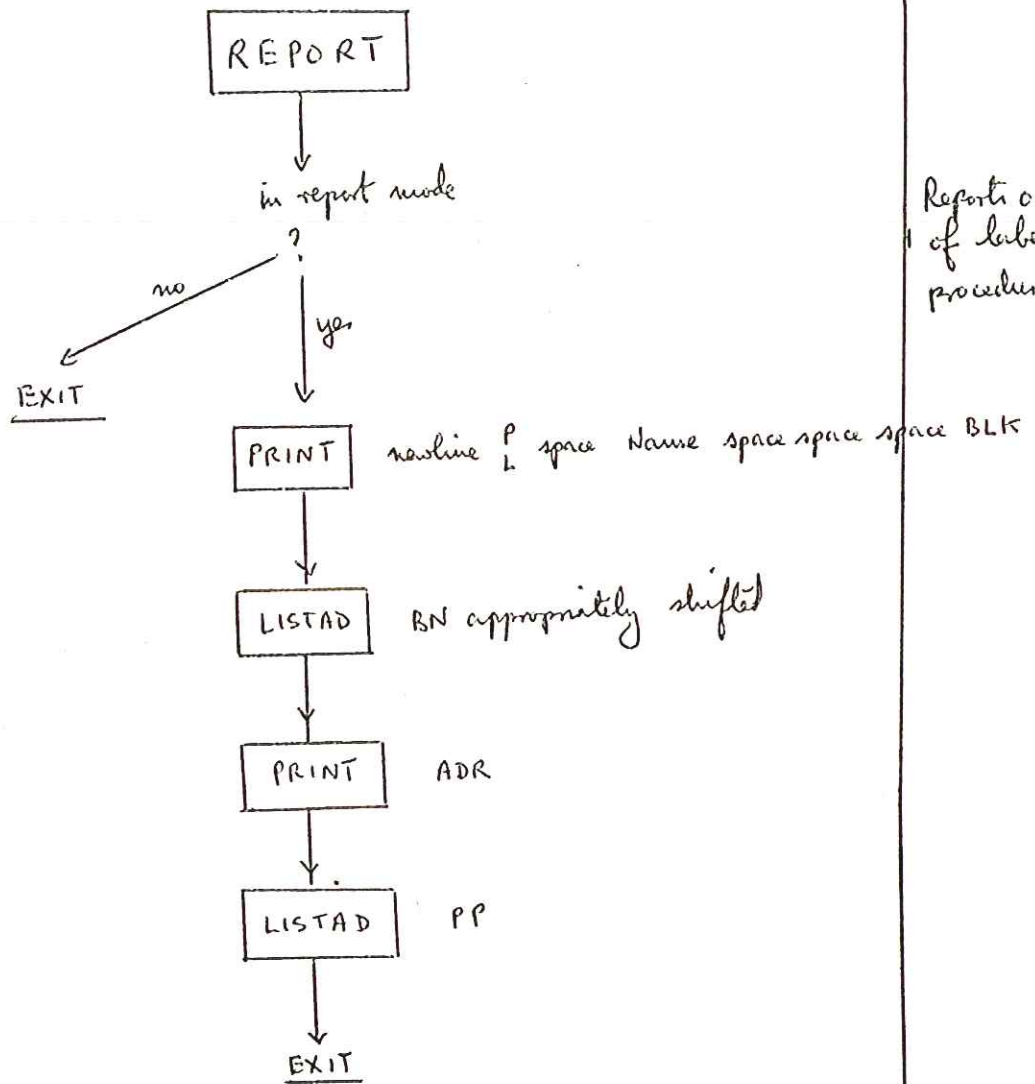 REPORT
in report mode
?
no
yes
EXIT
PRINT newline P L space Name space space space BLK
LISTAD BN appropriately shifted
PRINT ADR
LISTAD PP
EXIT
Reports
of